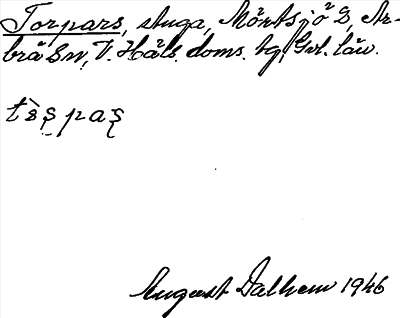 Torpars, stuga, Mörtsjö 2, Ar-
brå Sn, V. Häls. doms. hg, Gvl. län.
tès̨pas̨
August Dalhem 1946